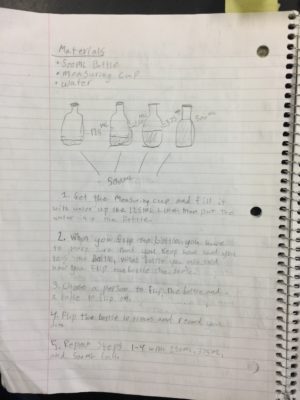 Materials
• 500ML Bottle
• measuring Cup
• water
125 ML
ML
ML
500 ML
500ML
1. Get the Measuring cup and fill it
with water up the 125ML then put the
water in the bottle.
2. When you flip the bottle, you have
to make sure that you keep how
the bottle, what
how you flip the bottle the same.
3. Choose a person to flip the bottle and
a table to flip on.
4. Flip the bottle 10 times and record
5. Repeat Steps 1-4 with
and 500ml